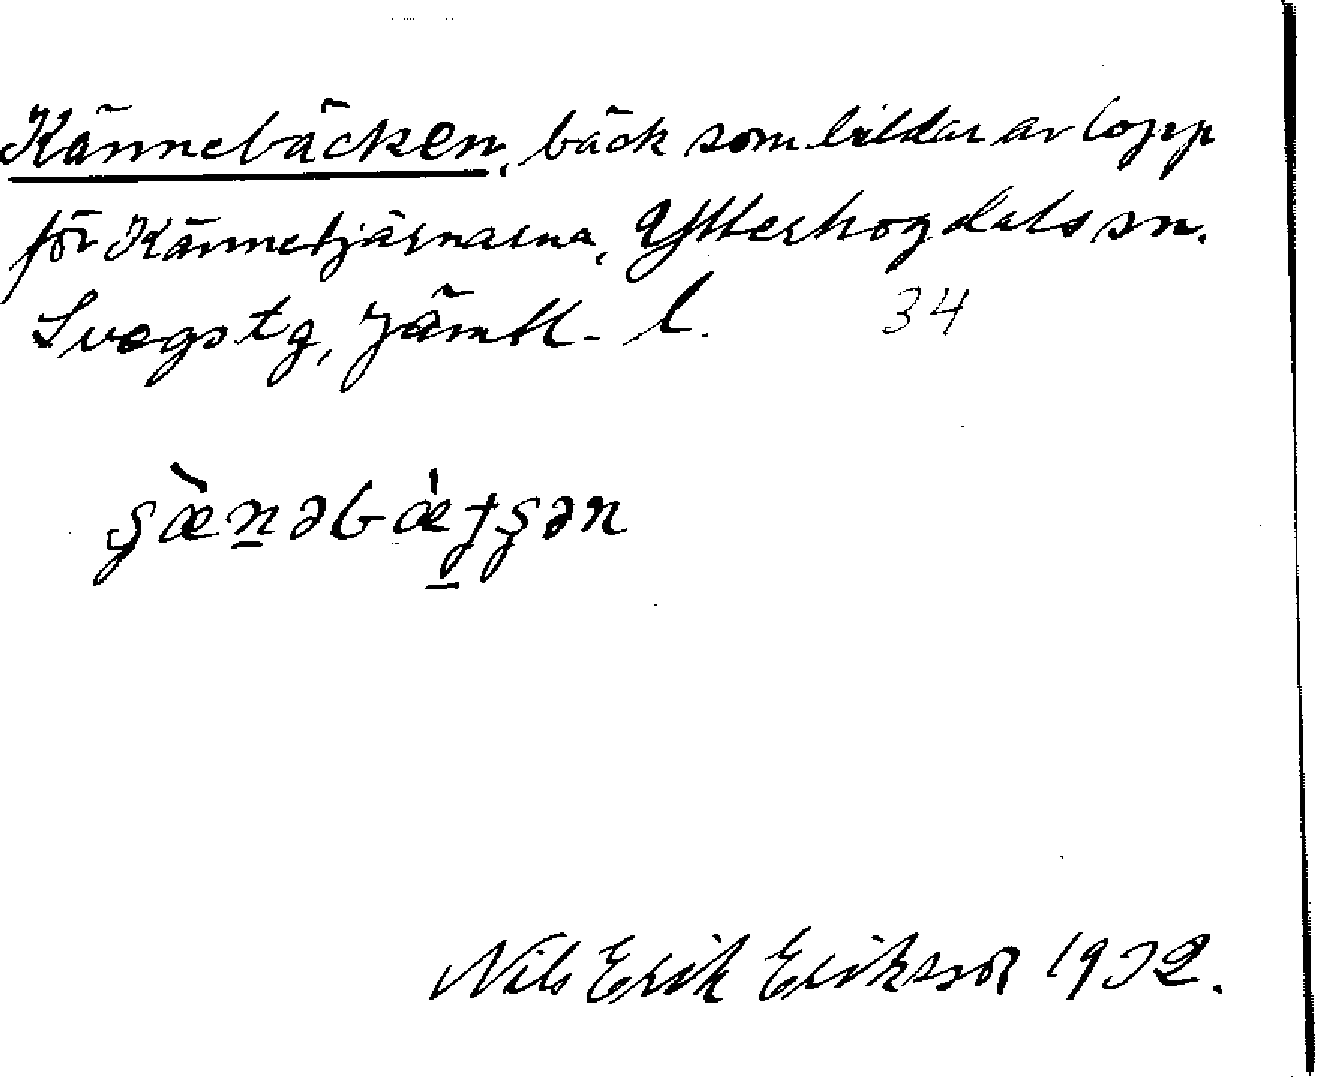 Kännebäcken, bäck som bildar avlopp
för Kännetjärnarna, Ytterhogdals sn.
Svegs tg, Jämtl. l. 34
şæ̀n̲əbæ̀ţşən
Nils Erik Eriksson 1932.